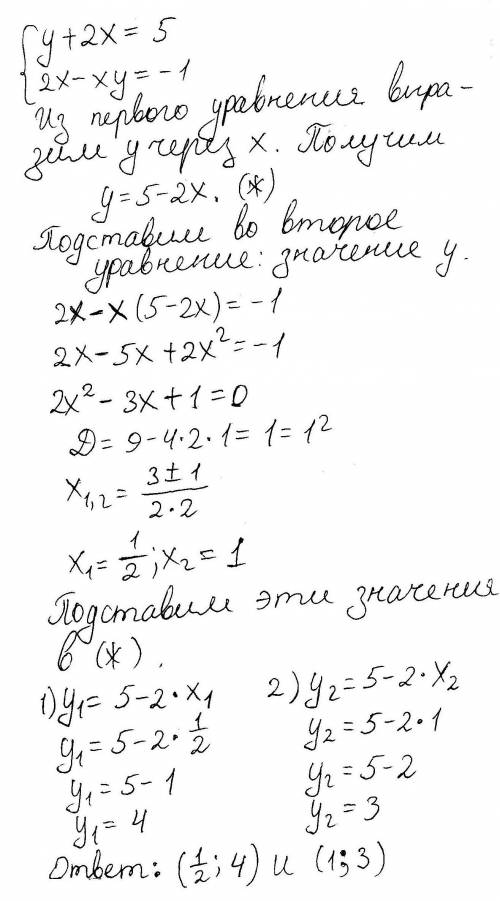 { y + 2x = 5
2x - xy = -1
Из первого уравнения выра-
зим y через x. Получим
y = 5 - 2x. (*)
Подставим во второе
уравнение: значение y.
2x - x(5 - 2x) = -1
2x - 5x + 2x² = -1
2x² - 3x + 1 = 0
D = 9 - 4·2·1 = 1 = 1²
x₁,₂ = (3 ± 1)/(2·2)
x₁ = 1/2; x₂ = 1
Подставим эти значения
в (*).
1) y₁ = 5 - 2·x₁
y₁ = 5 - 2·1/2
y₁ = 5 - 1
y₁ = 4
2) y₂ = 5 - 2·x₂
y₂ = 5 - 2·1
y₂ = 5 - 2
y₂ = 3
Ответ: (1/2; 4) и (1; 3)